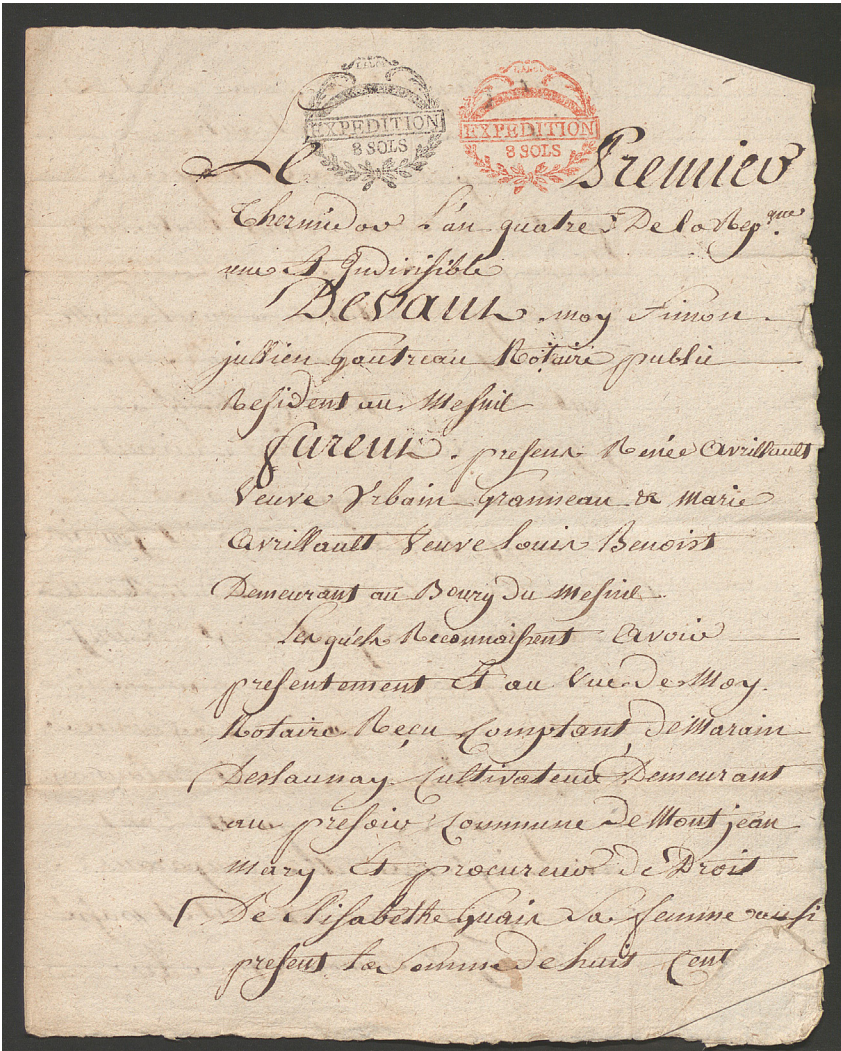 EXPEDITION
8 SOLS
EXPEDITION
8 SOLS
Le Premier
Thermidor L'an quatre De la Rep.que
une Et Indivisible
Devant moy Simon
jullien Gautreau Notaire public
Resident au Mesnil
furent presens Renée Avrillault
Veuve Urbain Granneau & Marie
Avrillault Veuve louis Benoist
Demeurant au Bourg du Mesnil
Lesquels Reconnoissent avoir
presentement Et au Vue de Moy
Notaire Reçu Comptant de Marain
Deslaunay Cultivateur Demeurant
au presoir Commune de Montjean
mary Et procureur de Droit
De Elisabethe Guais Sa femme aussi
present la Somme de huit Cent